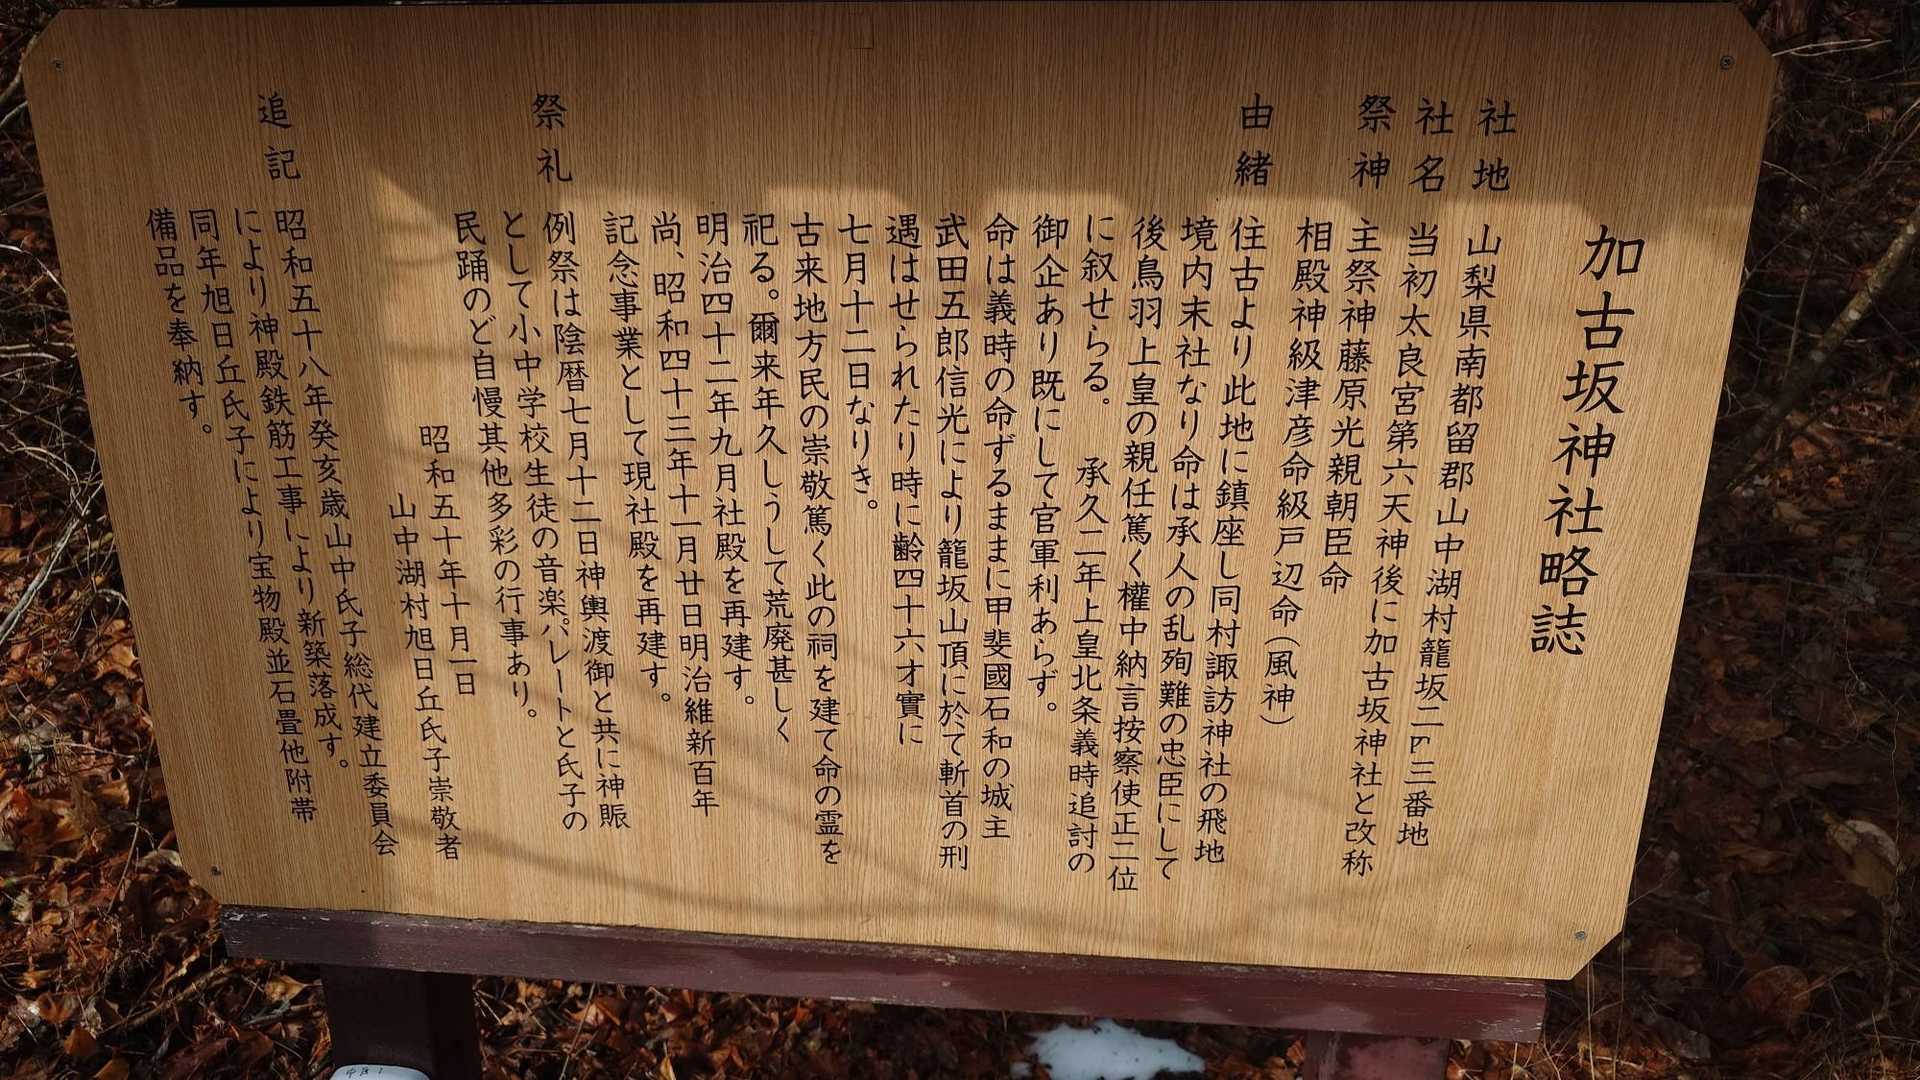 加古坂神社略誌
社地 山梨県南都留郡山中湖村籠坂二冂三番地
社名 当初太良宮第六天神後に加古坂神社と改称
祭神 主祭神藤原光親朝臣命
相殿神級津彦命級戸辺命(風神)
由緒 住古より此地に鎮座し同村諏訪神社の飛地
境内末社なり命は承人の乱殉難の忠臣にして
後鳥羽上皇の親任篤く權中納言按察使正二位
に叙せらる。 承久二年上皇北条義時追討の
御企あり既にして官軍利あらず。
命は義時の命ずるままに甲斐國石和の城主
武田五郎信光により籠坂山頂に於て斬首の刑
遇はせられたり時に齢四十六才實に
七月十二日なりき。
古来地方民の崇敬篤く此の祠を建て命の霊を
祀る。爾来年久しうして荒廃甚しく
明治四十二年九月社殿を再建す。
尚、昭和四十三年十一月廿日明治維新百年
記念事業として現社殿を再建す。
祭礼 例祭は陰暦七月十二日神輿渡御と共に神賑
として小中学校生徒の音楽パレートと氏子の
民踊のど自慢其他多彩の行事あり。
昭和五十年十月一日
山中湖村旭日丘氏子崇敬者
追記 昭和五十八年癸亥歳山中氏子総代建立委員会
により神殿鉄筋工事により新築落成す。
同年旭日丘氏子により宝物殿並石畳他附帯
備品を奉納す。